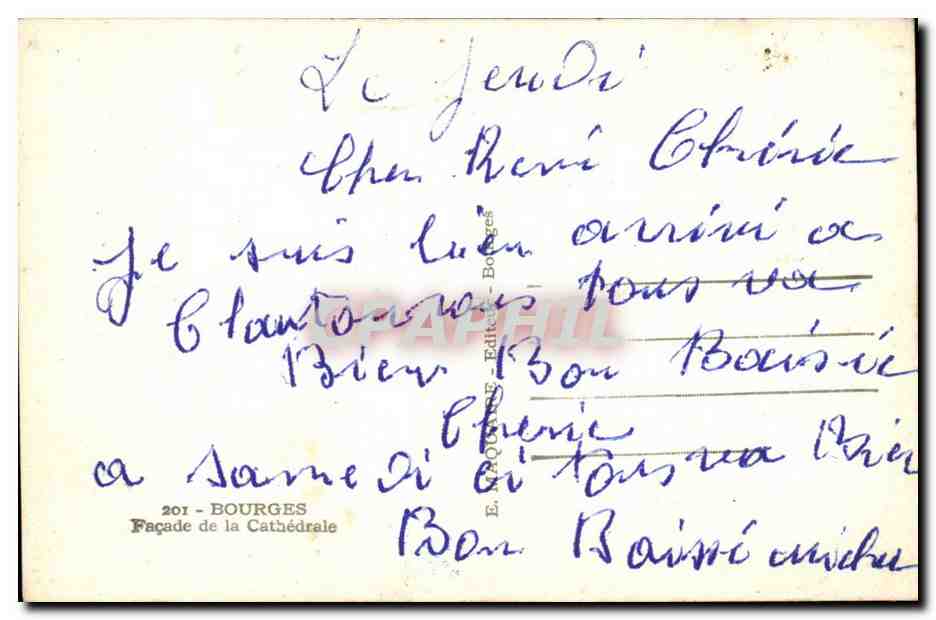 Le jeudi
Cher René Chérie
Je suis bien arrivé a
tous va
Bien Bon Baisié
Cherie
a samedi ci tous va Bien
Bon Baissé
201 - BOURGES
Façade de la Cathédrale
E. MAQUAIRE - Editeur - Bourges
CPAPHIL